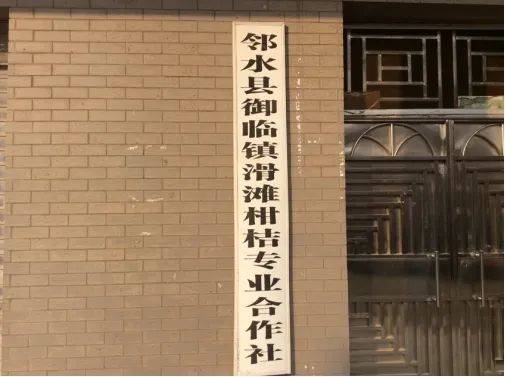 邻水县御临镇滑滩柑桔专业合作社